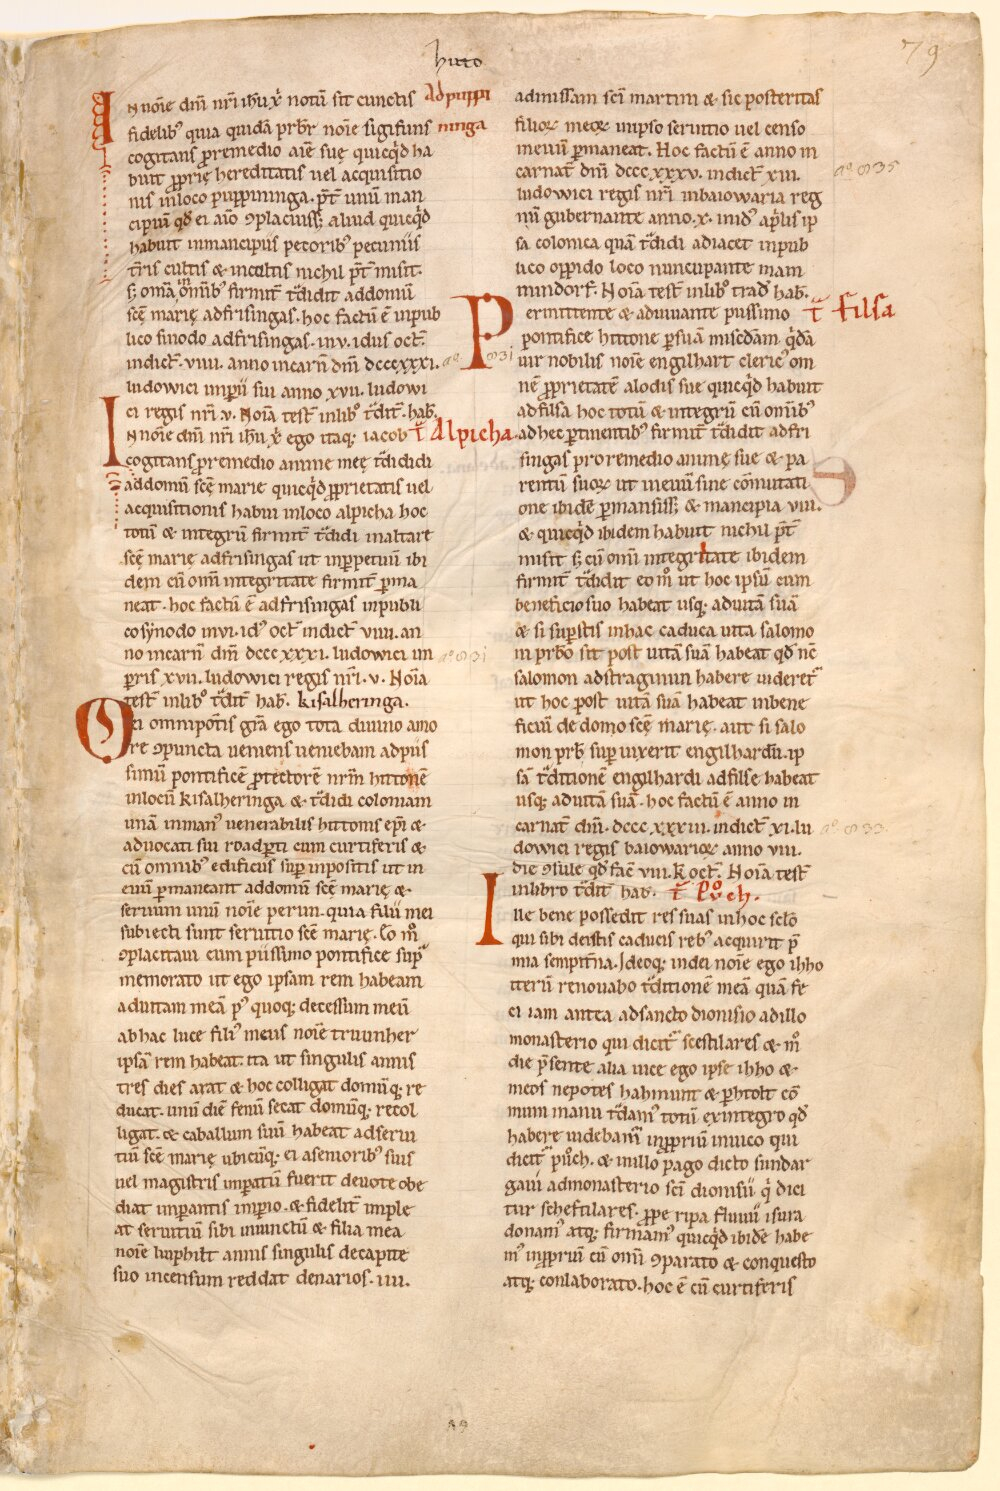 hitto
79
In noīe dm̄ nr̄i ihū xp̄i notū sit cunctis Ad puppi
fidelib; quia quidā prb̄r noīe sigifuns ninga
cogitans p̱remedio aīe sue̜ quicq̇d ha
buit p̱prie̜ hereditatis uel acquisitio
nis in loco puppininga. p̄t unū man
cipiū qd̄ ei aīo ꝯplaciuss; aliud quicq̇d
habuit in mancipiis pecorib; pecuniis
tr̄ris cultis & incultis nichil p̄t misit.
s; oma omīb; firmit̄ t̄didit ad domū
sce̜ marie̜ ad frisingas. hoc factū ē in pub
lico sinodo ad frisingas. in v. idus oct̄.
indict̄. viiii. anno incarn̄ dm̄ dcccxxxi. aº 831
ludowici inperii sui anno xvii. ludowi
ci regis nr̄i. v. Noīa test̄ in lib° t̄dit̄. hab̄.
In noīe dm̄ nr̄i ihū xp̄i ego itaq; iacob t̄ Alpicha
cogitans p̱remedio anime mee̜ t̄dididi
ad domū sce̜ marie quicq̇d p̱prietatis uel
acquisitionis habui in loco alpicha hoc
totū & integrū firmit̄ t̄didi in altare
sce̜ marie̜ ad frisingas ut in p̱petuū ibi
dem cū omī integritate firmit̄ p̱ma
neat. hoc factū ē ad frisingas in publi
co synodo in vi. id; oct̄ indict̄ viiii. an
no incarn̄ dm̄ dccc xxxi. ludowici in aº 831
p̱ris xvii. ludowici regis nr̄i. v. Noīa
test̄ in lib° t̄dit̄ hab̄. kisalheringa.
Dei omnipot̄is gr̄a ego tota diuino amo
re ꝯpuncta ueniens ueniebam ad piis
simū pontificē p̱tectorē nr̄m hittonē
in locū kisalheringa & t̄didi coloniam
unā in man; uenerabilis hittonis ep̄i &
aduocati sui roadp̱ti cum curtiferis &
cū omnib; edificiis sup̱inpositis ut in
euū p̱maneant ad domū sce̜ marie̜ &
seruum unū noīe perun. quia filii mei
subiecti sunt seruitio sce̜ marie̜. Eo m°
ꝯplacitaui cum piissimo pontifice sup̱
memorato ut ego ipsam rem habeam
ad uitam meā p; quoq; decessum meū
ab hac luce fili; meus noīe truunher
ipsā rem habeat. ita ut singulis annis
tres dies arat & hoc colligat domūq; re
ducat. unū diē fenū secat domūq; recol
ligat. & caballum suū habeat ad serui
tiū sce̜ marie̜ ubicūq; ei a seniorib; suis
uel magistris inp̱atū fuerit deuote obe
diat inp̱antis inp̱io. & fidelit̄ imple
at seruitiū sibi iniunctū & filia mea
noīe huphilt annis singulis de capite
suo in censum reddat denarios. iiii.
ad missam sc̄i martini & sic posteritas
filioꝝ meoꝝ in ipso seruitio uel censo
in euū p̱maneat. Hoc factū ē anno in
carnat̄ dm̄ dccc.xxxv. indict̄ xiii. aº 835
ludowici regis nr̄i in baiowaria reg
nū gubernante anno. x. in id; ap̄lis ip
sa colonica quā t̄didi adiacet in pub
lico oppido loco nuncupante mam
mindorf. Noīa test̄ in lib° trad̄ hab̄.
Permittente & adiuuante piissimo t̄ filsa
pontifice hittone p̱ suā misc̄dam q̇dā
uir nobilis noīe engilhart cleric; om
nē p̱prietatē alodis sue quicq̇d habuit
ad filsa hoc totū & integrū cū omīb;
ad hec p̱tinentib; firmit̄ t̄didit ad fri
singas pro remedio anime̜ sue & pa
rentū suoꝝ ut in euū sine cōmutati
one ibidē p̱mansiss; & mancipia viii.
& quicq̇d ibidem habuit nichil p̄t
misit s; cū omī integritate ibidem
firmit̄ t̄didit eo m° ut hoc ipsū cum
beneficio suo habeat usq; ad uitā suā
& si sup̱stis in hac caduca uita salomo
in prb̄o sit post uitā suā habeat qd̄ nē
salomon ad stragiinun habere uideret̄
ut hoc post uitā suā habeat in bene
ficiū de domo sce̜ marie̜. aut si salo
mon prb̄ sup̱ uixerit engilhardū. ip
sā t̄ditionē engilhardi ad filse habeat
usq; ad uitā suā. hoc factū ē anno in
carnat̄ dm̄. dccc xxxiii. indict̄ xi. lu aº 833
dowici regis baiowarioꝝ anno viii.
die ꝯsule qd̄ fac̄ viii. k̄ oct̄. Noīa test̄
in libro t̄dit̄ hab̄. t̄ Puͦch.
Ille bene possedit res suas in hoc sc̄lo
qui sibi de istis caducis reb; acquirit p̄
mia sempit̄na. Ideoq; in dei noīe ego ihho
iterū renouabo t̄ditionē meā quā fe
ci iam antea ad sancto dionisio ad illo
monasterio qui dicit̄ scestilares & m°
die p̄sente alia uice ego ipse ihho &
meos nepotes hahmunt & p̱htolt cō
muni manu t̄dam; totū ex integro qd̄
habere uidebam̄ in p̱priū in uico qui
dicit̄ puͦch. & in illo pago dicto sundar
gauū ad monasterio sc̄i dionisii q̇ dici
tur scheftilares. p̱pe ripa fluuii isura
donam; atq; firmam; quicq̇d ibidē habe
m; in p̱priū cū omī ꝯparato & conquesto
atq; conlaborato. hoc ē cū curtiferis